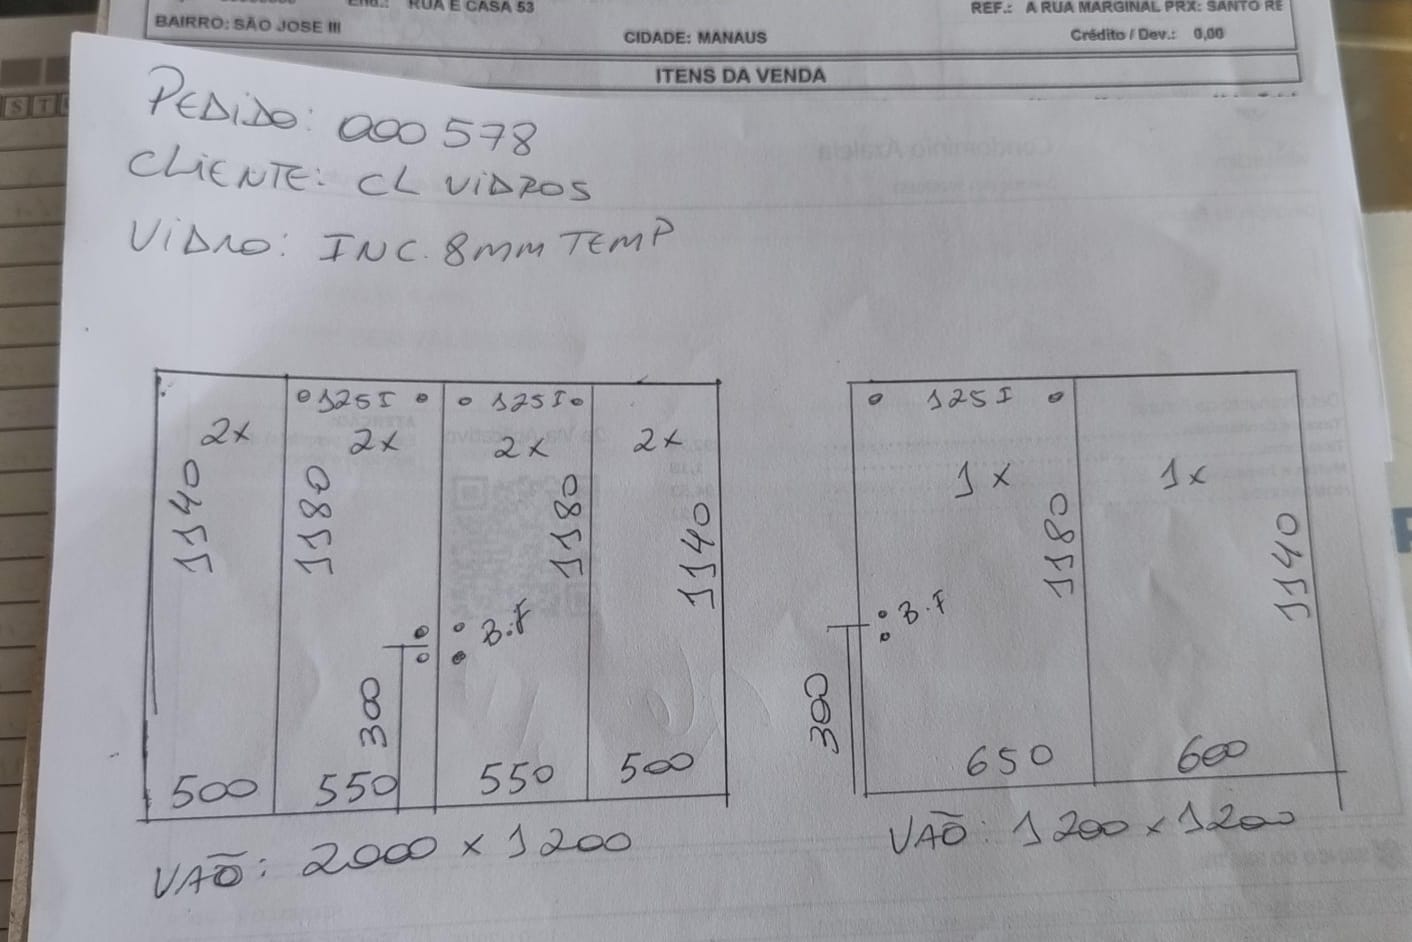 RUA E CASA 53
REF.: A RUA MARGINAL PRX: SANTO RE
BAIRRO: SÃO JOSE III
CIDADE: MANAUS
Crédito / Dev.: 0,00
ITENS DA VENDA
PEDIDO: 000578
CLIENTE: CL VIDROS
VIDRO: INC. 8MM TEMP
125I 125I 125I
2x 2x 2x 2x 1x 1x
1140 1180 1180 1140 1180 1140
B.F B.F
300 300
500 550 550 500 650 600
VAÕ: 2000 x 1200
VAÕ: 1200 x 1200